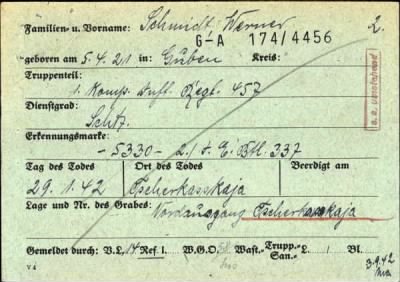 Familien- u. Vorname: Schmidt, Werner 2.
G-A 174/4456
geboren am 5.4.21 in: Guben Kreis:
Truppenteil:
1. Komp. Inft. Regt. 457
Dienstgrad:
Schtz.
Erkennungsmarke:
-5330- 2./J.E.Btl. 337
Tag des Todes Ort des Todes Beerdigt am
29.1.42 Tscherkasskaja
Lage und Nr. des Grabes:
Nordausgang Tscherkasskaja
Gemeldet durch: V.L. 14 Ref. 1. W.G.O. 58 Wast.- Trupp.- San.- L. 1 Bl.
V 4
3.9.42
s. a. umstehend